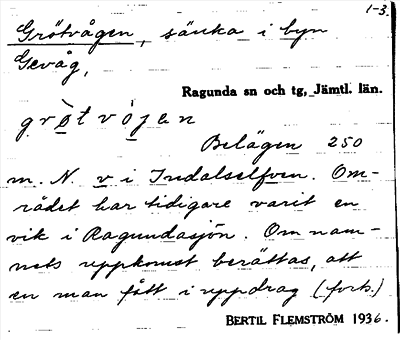 1-3.
Grötvågen, sänka i byn
Gevåg,
Ragunda sn och tg, Jämtl. län.
grò̤tvòjen
Belägen 250
m. N. v i Indalselfven. Om-
rådet har tidigare varit en
vik i Ragundasjön. Om nam-
nets uppkomst berättas, att
en man fått i uppdrag (forts.)
BERTIL FLEMSTRÖM 1936.